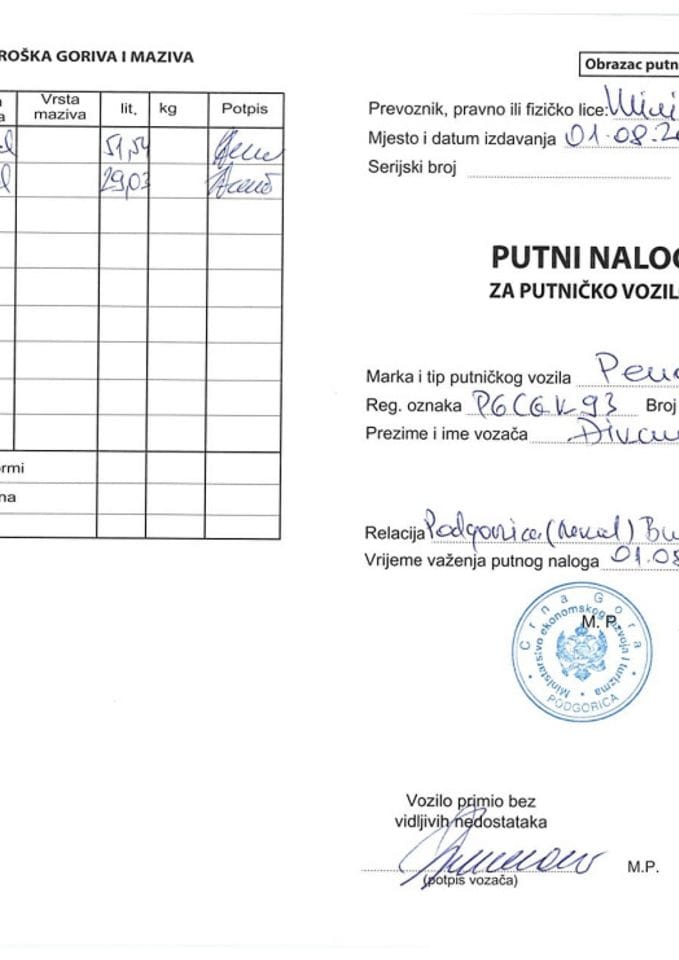 ROŠKA GORIVA I MAZIVA
Vrsta maziva lit. kg Potpis
51,54
29,03
ormi
na
Obrazac putn
Prevoznik, pravno ili fizičko lice: Mini
Mjesto i datum izdavanja 01.08.20
Serijski broj
PUTNI NALOG
ZA PUTNIČKO VOZIL
Marka i tip putničkog vozila Peu
Reg. oznaka PGCGK93 Broj
Prezime i ime vozača
Relacija Podgorica Bu
Vrijeme važenja putnog naloga 01.08
M. P.
Crna Gora
Ministarstvo ekonomskog razvoja i turizma
PODGORICA
Vozilo primio bez
vidljivih nedostataka
M.P.
(potpis vozača)